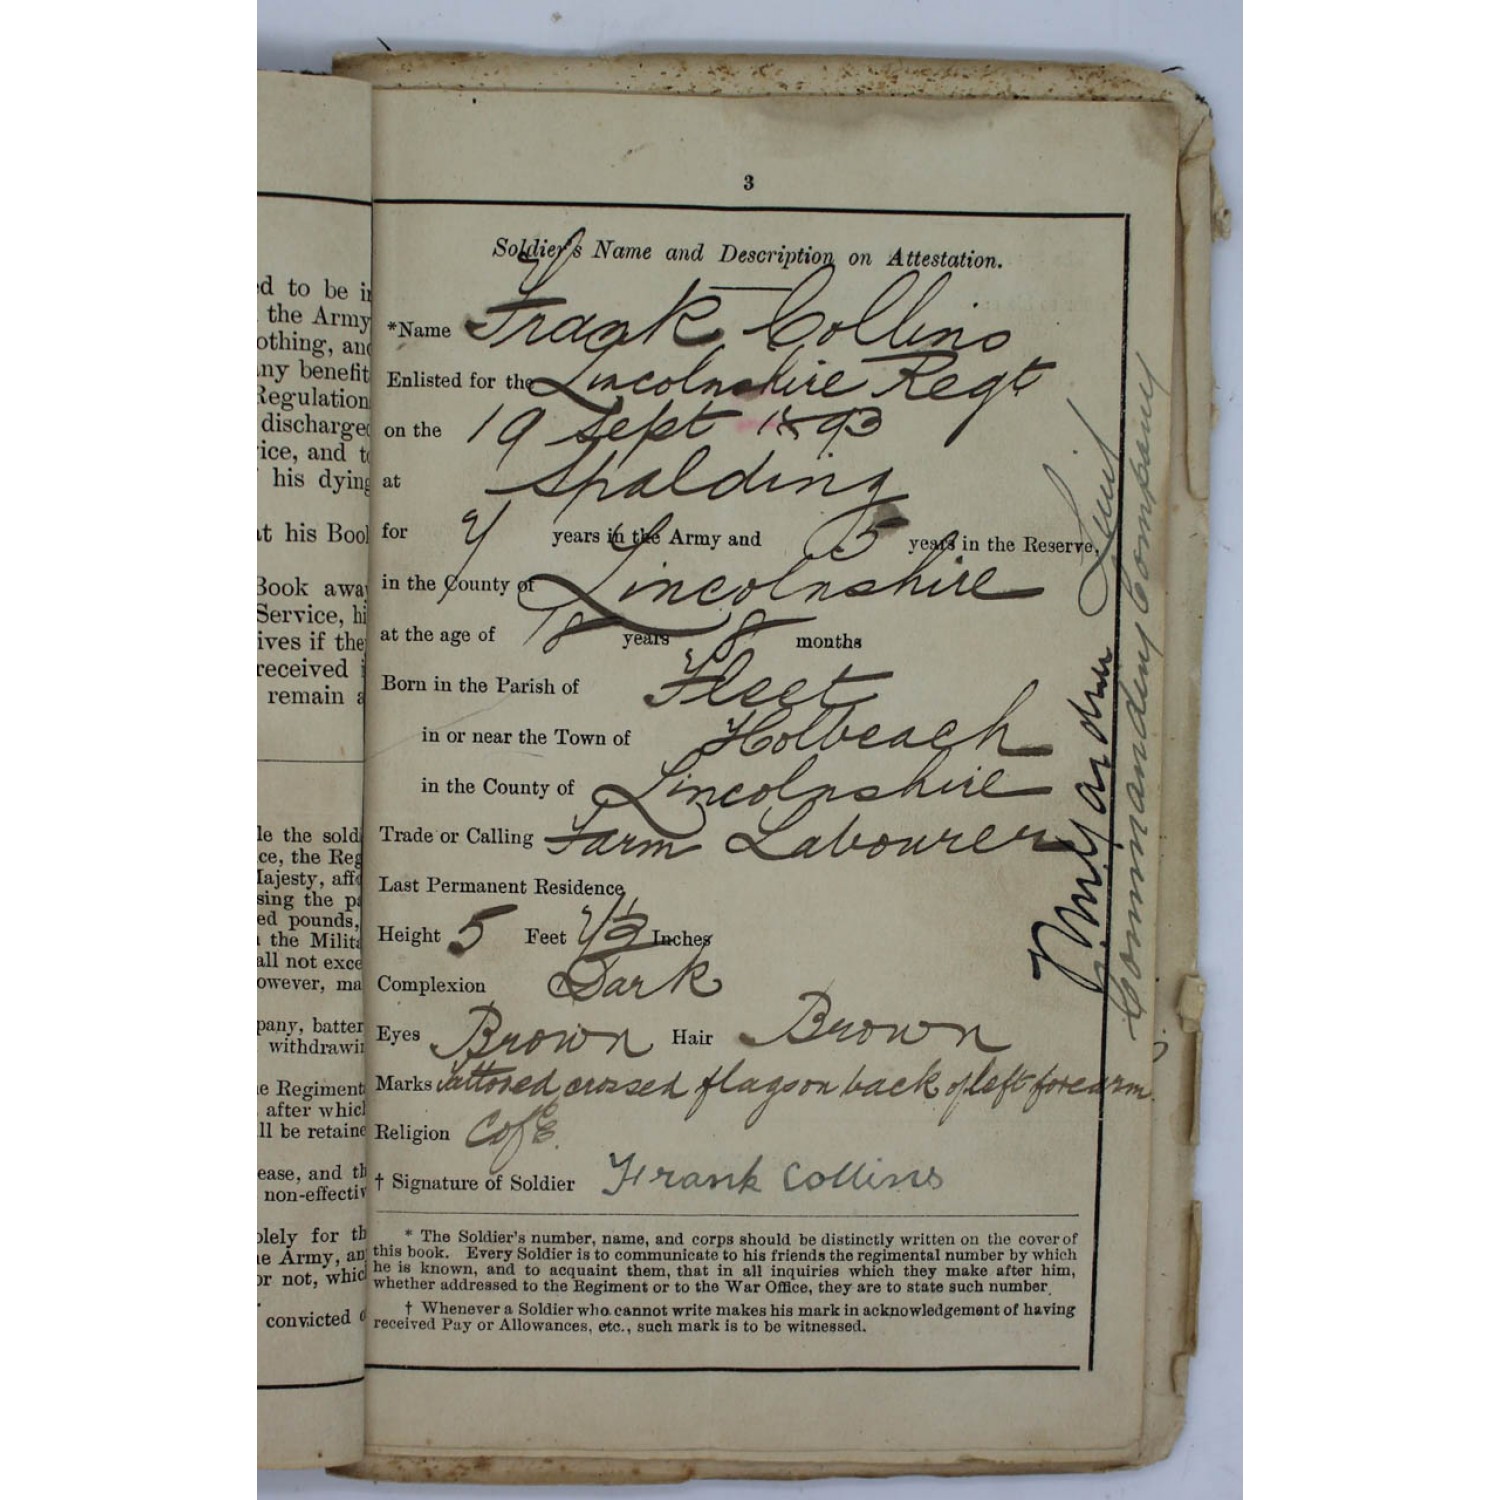 d to be i
the Army
othing, an
ny benefit
Regulation
discharge
ice, and t
his dying
t his Boo
Book awa
Service, hi
ives if the
received
remain a
le the sold
ce, the Reg
Majesty, aff
sing the p
ed pounds,
the Milit
all not exce
owever, ma
pany, batter
withdrawi
e Regiment
after whic
ll be retaine
ease, and th
non-effectiv
olely for th
e Army, an
or not, whic
convicted
3
Soldier's Name and Description on Attestation.
*Name Frank Collins
Enlisted for the Lincolnshire Regt
on the 19 Sept 1893
at Spalding
for 7 years in the Army and 5 years in the Reserve,
in the County of Lincolnshire
at the age of 18 years 8 months
Born in the Parish of Fleet
in or near the Town of Holbeach
in the County of Lincolnshire
Trade or Calling Farm Labourer
Last Permanent Residence
Height 5 Feet 7½ Inches
Complexion Dark
Eyes Brown Hair Brown
Marks Tattooed crossed flags on back of left forearm.
Religion C of E.
† Signature of Soldier Frank Collins
* The Soldier's number, name, and corps should be distinctly written on the cover of
this book. Every Soldier is to communicate to his friends the regimental number by which
he is known, and to acquaint them, that in all inquiries which they make after him,
whether addressed to the Regiment or to the War Office, they are to state such number.
† Whenever a Soldier who cannot write makes his mark in acknowledgement of having
received Pay or Allowances, etc., such mark is to be witnessed.
Lieut
Commanding Company